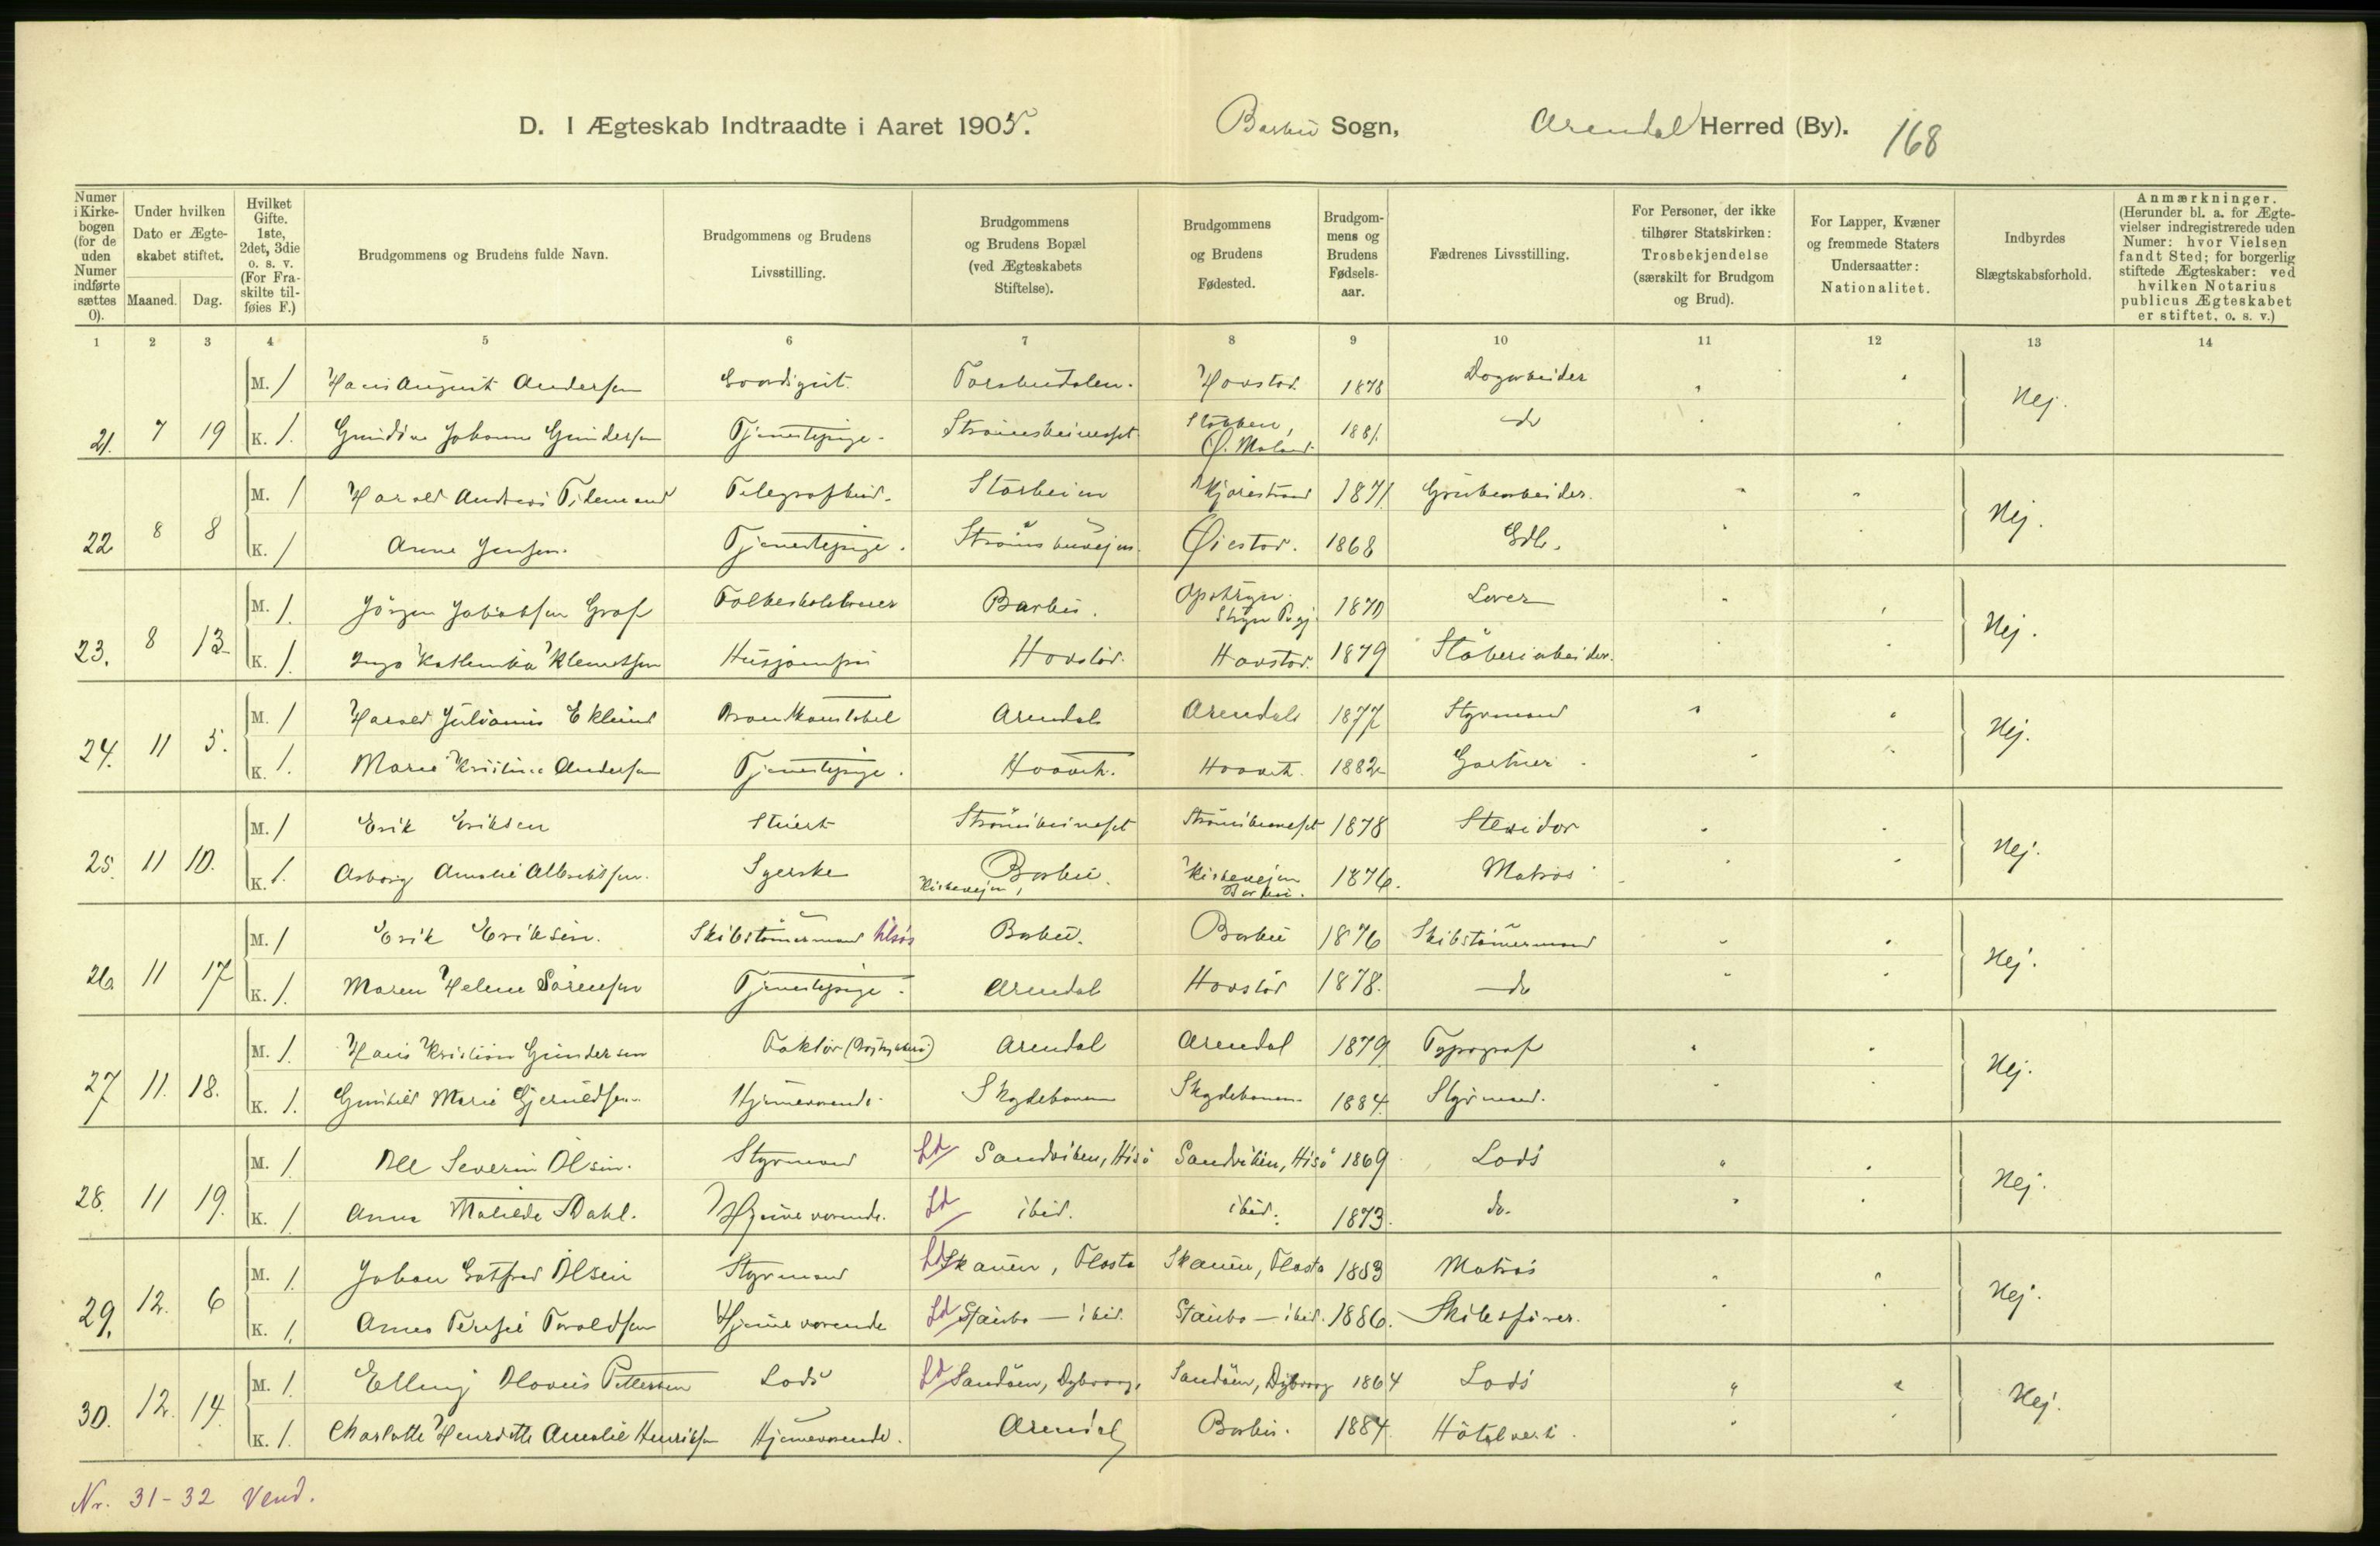 D. I Ægteskab Indtraadte i Aaret 1905. Barbu Sogn, Arendal Herred (By). 168
Numer i Kirkebogen (for de uden Numer indførte sættes 0).
Under hvilken Dato er Ægteskabet stiftet.
Maaned. Dag.
Hvilket Gifte. 1ste, 2det, 3die o. s. v. (For Fraskilte tilføies F.)
Brudgommens og Brudens fulde Navn.
Brudgommens og Brudens Livsstilling.
Brudgommens og Brudens Bopæl (ved Ægteskabets Stiftelse).
Brudgommens og Brudens Fødested.
Brudgommens og Brudens Fødselsaar.
Fædrenes Livsstilling.
For Personer, der ikke tilhører Statskirken: Trosbekjendelse (særskilt for Brudgom og Brud).
For Lapper, Kvæner og fremmede Staters Undersaatter: Nationalitet.
Indbyrdes Slægtskabsforhold.
Anmærkninger. (Herunder bl. a. for Ægtevielser indregistrerede uden Numer: hvor Vielsen fandt Sted; for borgerlig stiftede Ægteskaber: ved hvilken Notarius publicus Ægteskabet er stiftet, o. s. v.)
1 2 3 4 5 6 7 8 9 10 11 12 13 14
M. 1 Hans August Andersen 1878 Dagarbeider
21. 7 19 K. 1. Gundine Johanne Gundersen Tjenestepige. Strømsbuneset Stokken, Ø. Moland 1881. do Nej.
M. 1 Harald Andreas Tidemand Telegrafbud. Størheien 1871. Grubearbeider.
22 8 8 K. 1 Anne Jensen. Tjenestepige. Strømsbuvejen. Øiestad. 1868 Gdb. Nej.
M. 1. Jörgen Jakobsen Graf Folkeskolelærer Barbu. Opstryn. Stryn Pgj. 1870
23. 8 13 K. 1. Klemetsen Husjomfru Havstad. Havstad. 1879 Støberiarbeider. Nej.
M. 1 Harald Julianus Eklund Brandkonstabel Arendal Arendal 1877 Styrmand
24. 11 5. K. 1. Marie Kristine Andersen Tjenestepige. 1882 Gartner. Nej.
M. 1 Erik Eriksen Stuert Strömsbuneset Strömsbuneset 1878 Stevidor
25. 11 10. K. 1. Asborg Amalie Albrektsen. Syerske Kirkevejen, Barbu. Kirkevejen Barbu. 1876. Matros Nej.
M. 1 Erik Eriksen. Skibstømmermand tilsøs Barbu. Barbu 1876 Skibstømmermand
26 11 17 K. 1. Maren Helene Sörensen Tjenestepige. Arendal Havstad 1878. do Nej.
M. 1. Hans Kristian Gundersen Faktor (Bogtrykkeri) Arendal Arendal 1879. Typograf
27 11. 18. K. 1. Gunhild Marie Gjeruldsen Hjemmeværende. Skydebanen Skydebanen 1884. Styrmand. Nej.
M. 1. Ole Severin Olsen. Styrmand Ld Sandviken, Hisö Sandviken, Hisö 1869 Lods
28. 11 19. K. 1 Anna Matilde Dahl. Hjemmeværende. Ld ibid. ibid. 1873. do. Nej.
M. 1. Johan Gotfred Olsen Styrmand Ld Skauen, Flosta Skauen, Flosta 1883 Matros
29. 12. 6 K. 1. Agnes Terese Toraldsen Hjemmeværende Ld Staubo — ibid. Staubo — ibid. 1886. Skibsfører. Nej.
M. 1. Elling Olavus Pettersen Lods Ld Sandöen, Dybvaag, Sandöen, Dybvaag 1864 Lods
30. 12. 14. K. 1. Charlotte Henriette Amalie Henriksen Hjemmeværende. Arendal Barbu. 1884. Hôtelvert. Nej.
Nr. 31-32 Vend.